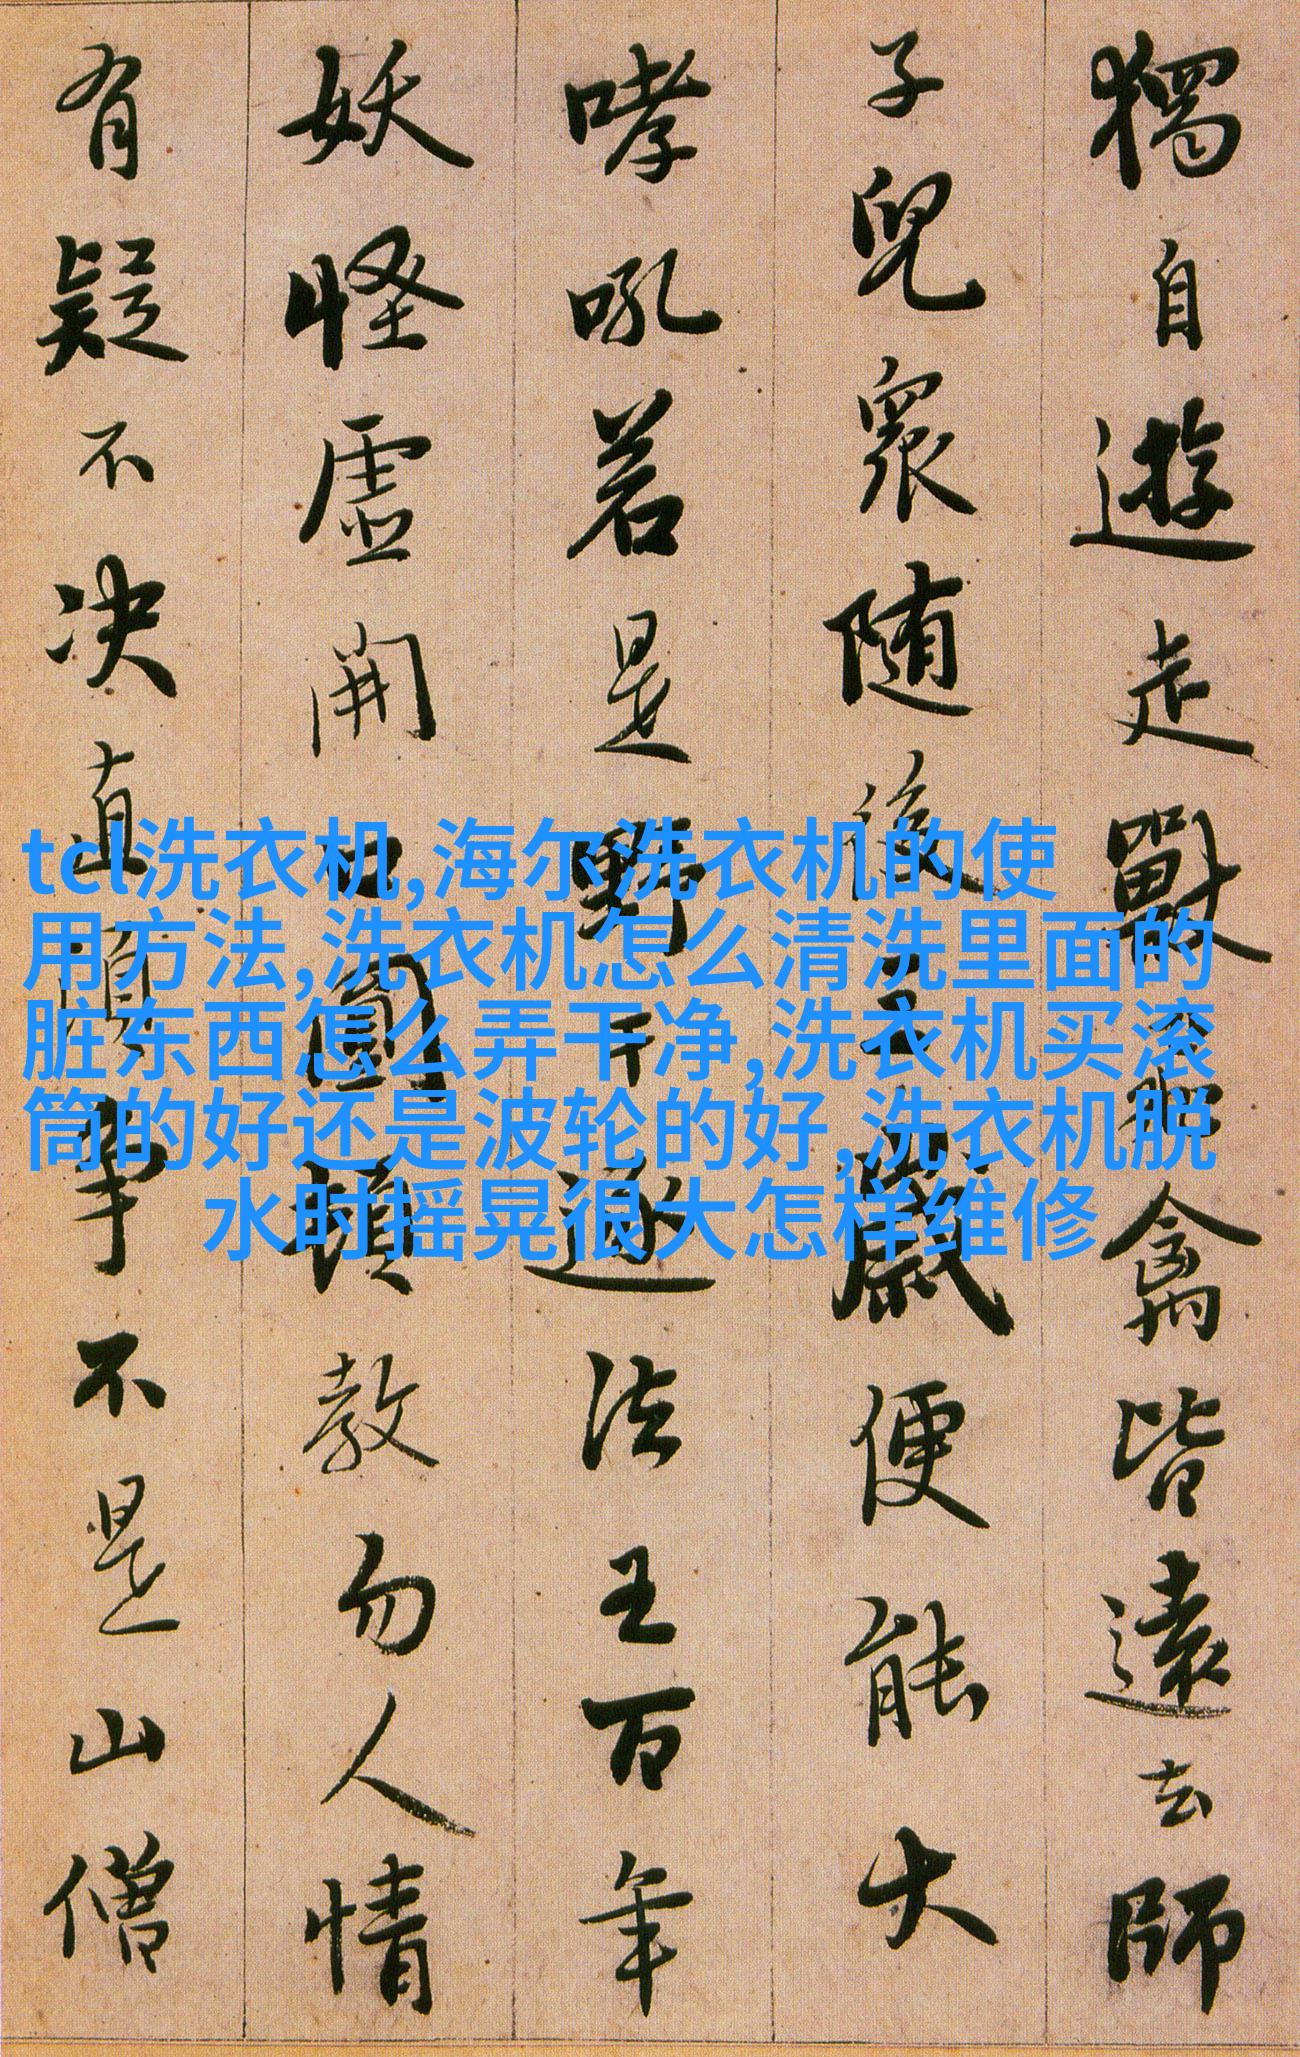 獨自遊走獸飛禽皆遠去師
子兒衆随後三歲便能大
哮吼若是野干逐法王百年
妖怪虛開口圓頓教勿人情
有疑不决直須爭不是山僧
tcl洗衣机,海尔洗衣机的使
用方法,洗衣机怎么清洗里面的
脏东西怎么弄干净,洗衣机买滚
筒的好还是波轮的好,洗衣机脱
水时摇晃很大怎样维修